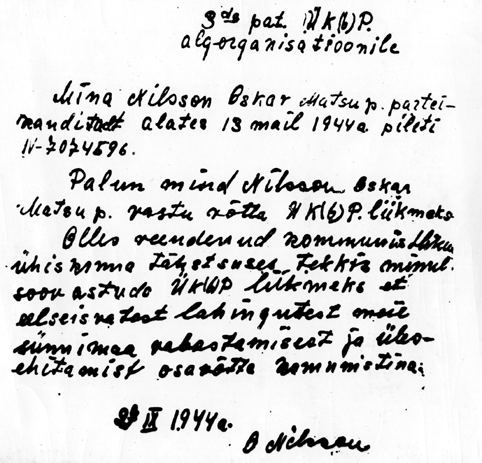 3da pat. ÜK(b)P.
algorganisatsioonile
Mina Nilsson Oskar Matsu p. partei-
kanditadt alates 13 mail 1944a. pileti
N-7074596.
Palun mind Nilsson Oskar
Matsu p. vastu võtta ÜK(b)P. liikmeks
Olles veendenud kommunistliku
ühiskonna tähetsuses, tekkis minul
soov astuda ÜK(b)P liikmeks et
eelseisvatest lahingutest meie
sünnimaa vabastamisest ja üles-
ehitamist osavõtta kommunistina.
IX 1944a.
O Nilsson